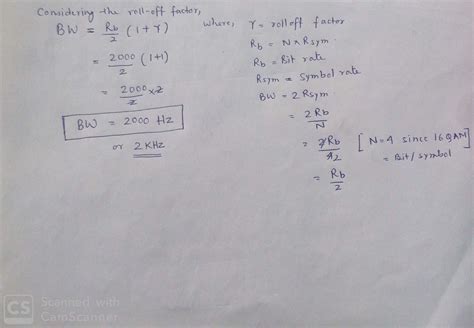 Considering the roll-off factor,
BW = Rb/2 (1+γ)
= 2000/2 (1+1)
= 2000/2 x2
BW = 2000 Hz
or 2 KHz
where, γ = roll off factor
Rb = N x Rsym.
Rb = Bit rate
Rsym = Symbol rate
BW = 2 Rsym.
= 2Rb/N
= 2Rb/42 [N=4 since 16 QAM]
= Bit/symbol
= Rb/2
CS Scanned with
CamScanner